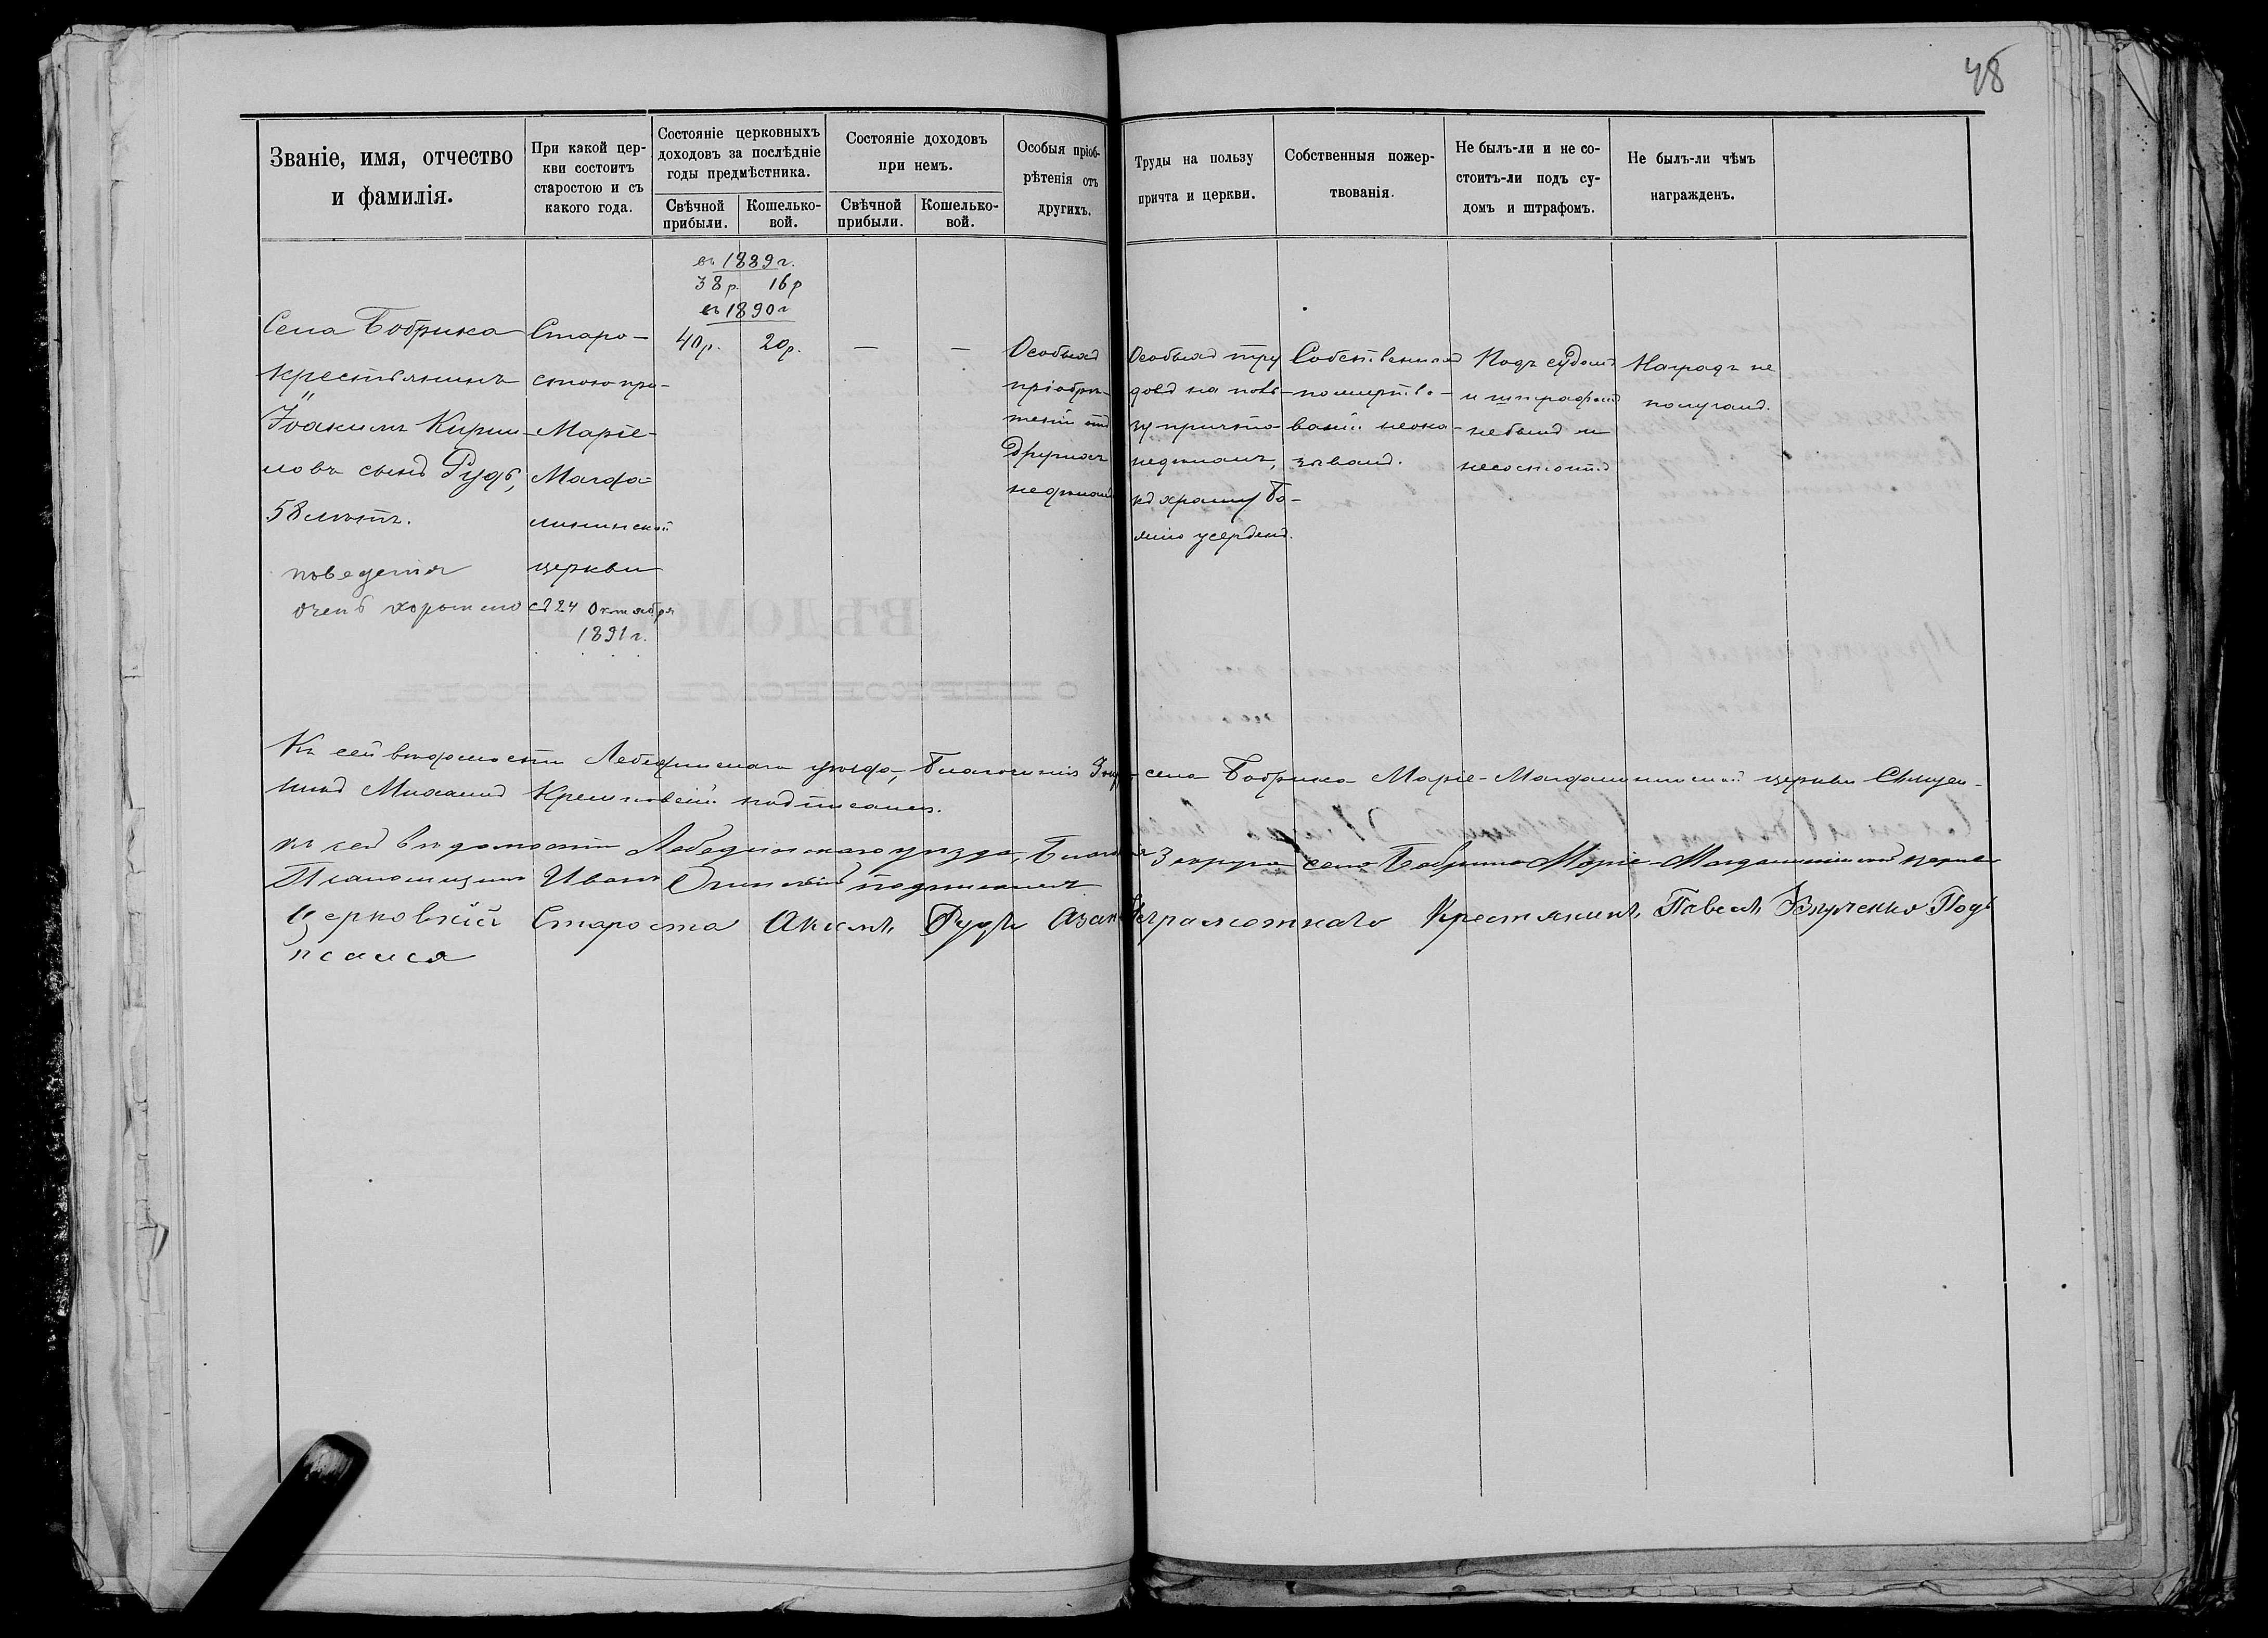 48
Званіе, имя, отчество
и фамилія.
При какой цер-
кви состоитъ
старостою и съ
какого года.
Состояніе церковныхъ
доходовъ за послѣдніе
годы предмѣстника.
Свѣчной
прибыли.
Кошелько-
вой.
Состояніе доходовъ
при немъ.
Свѣчной
прибыли.
Кошелько-
вой.
Особыя пріоб-
рѣтенія отъ
другихъ.
Труды на пользу
причта и церкви.
Собственныя пожер-
твованія.
Не былъ-ли и не со-
стоитъ-ли подъ су-
домъ и штрафомъ.
Не былъ-ли чѣмъ
награжденъ.
Села Бобрика
крестьянинъ
Іоакимъ Кирил-
ловъ сынъ Рудь,
58 лѣтъ.
поведенія
очень хорошаго
Старо-
стою при
Маріе-
Магда-
лининской
церкви
съ 24 Октября
1891 г.
въ 1889 г.
38 р. 16 р
въ 1890 г
40 р. 20 р.
— —
Особыхъ
пріобрѣ-
теній отъ
другихъ
Особыхъ тру
довъ на поль-
зу причта
недѣлалъ,
къ храму Бо-
жію усерденъ.
Собственныхъ
пожертво-
ваній неока-
зывалъ.
Подъ судомъ
и штрафомъ
небылъ и
несостоитъ
Наградъ не
получалъ.
Къ сей вѣдомости Лебединскаго уѣзда, села Бобрика Маріе-Магдалининской церкви Священ-
никъ Михаилъ подписался.
къ сей вѣдомости Лебединскаго уѣзда, 3 округа села Бобрика Маріе-Магдалининской церкви
Псаломщикъ Иванъ подписался
Церковный Староста Акимъ Рудь Азанего неграмотнаго Крестянинъ Павелъ Подъ
псался